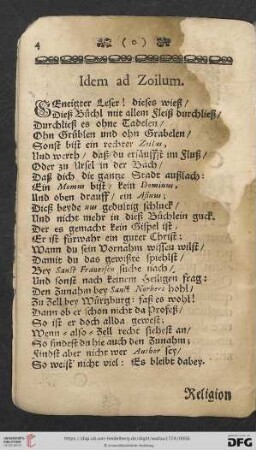 4 ( o )
Idem ad Zoilum.
GEneigter Leser! dieses wieß/
Dieß Büchl mit allem Fleiß durchließ/
Durchließ es ohne Tadelen/
Ohn Grüblen und ohn Grabelen/
Sonst bist ein rechter Zoilus,
Und werth/ daß du ersäuffst im Fluß/
Oder zu Ursel in der Bach/
Daß dich die gantze Stadt außlach:
Ein Momus bist/ kein Dominus,
Und oben drauff/ ein Asinus;
Dieß beyde nur gedultig schluck/
Und nicht mehr in dieß Büchlein guck.
Der es gemacht kein Gispel ist/
Er ist fürwahr ein guter Christ:
Wann du sein Vornahm wissen wilst/
Damit du das gewißre spiehlst/
Bey Sanct Frantzisen suche nach/
Und sonst nach keinem Heiligen frag:
Den Zunahm bey Sanct Norbert hohl/
Zu Zell bey Würtzburg: faß es wohl!
Dann ob er schon nicht da Profeß/
So ist er doch allda geweßt:
Wenn-also-Zell recht sieheft an/
So findest du hie auch den Zunahm;
Findst aber nicht wer Author sey/
So weist nicht viel: Es bleibt dabey.
Religion